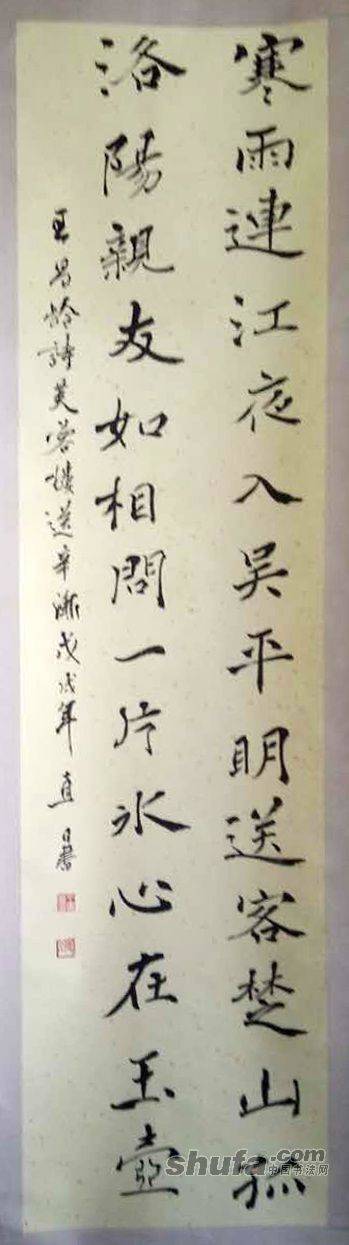 寒雨連江夜入吳平明送客楚山孤
洛陽親友如相問一片冰心在玉壺
王昌齡詩芙蓉樓送辛漸戊戌年直書
shufa.com
中国书法网